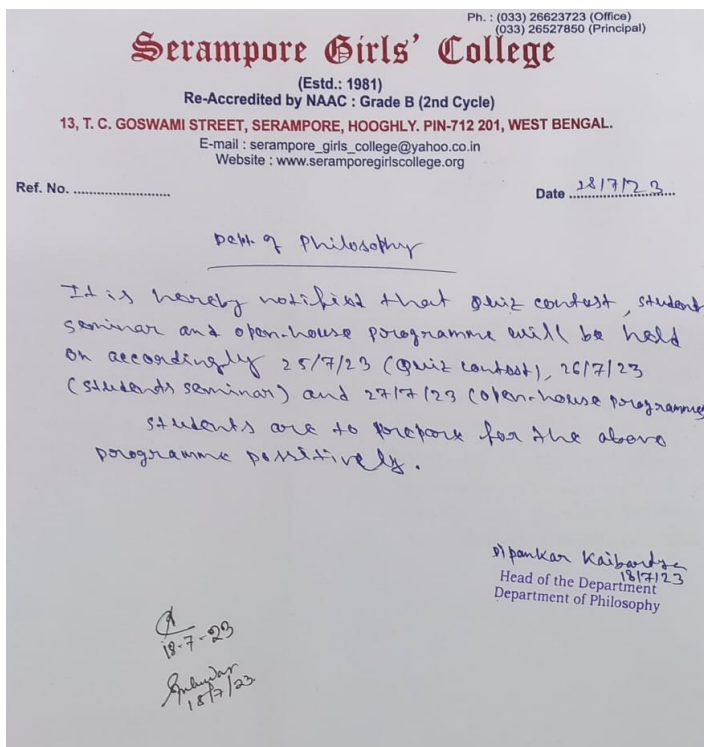 Ph. : (033) 26623723 (Office)
(033) 26527850 (Principal)
Serampore Girls' College
(Estd.: 1981)
Re-Accredited by NAAC : Grade B (2nd Cycle)
13, T. C. GOSWAMI STREET, SERAMPORE, HOOGHLY. PIN-712 201, WEST BENGAL.
E-mail : serampore_girls_college@yahoo.co.in
Website : www.seramporegirlscollege.org
Ref. No. ........................
Date 18/7/23
Dept. of Philosophy
It is hereby notified that Quiz contest, student
seminar and open-house programme will be held
on accordingly 25/7/23 (Quiz contest), 26/7/23
(students seminar) and 27/7/23 (open-house programme)
students are to prepare for the above
programme possitively.
Dipankar Kaibartya
18/7/23
Head of the Department
Department of Philosophy
18-7-23
18/7/23